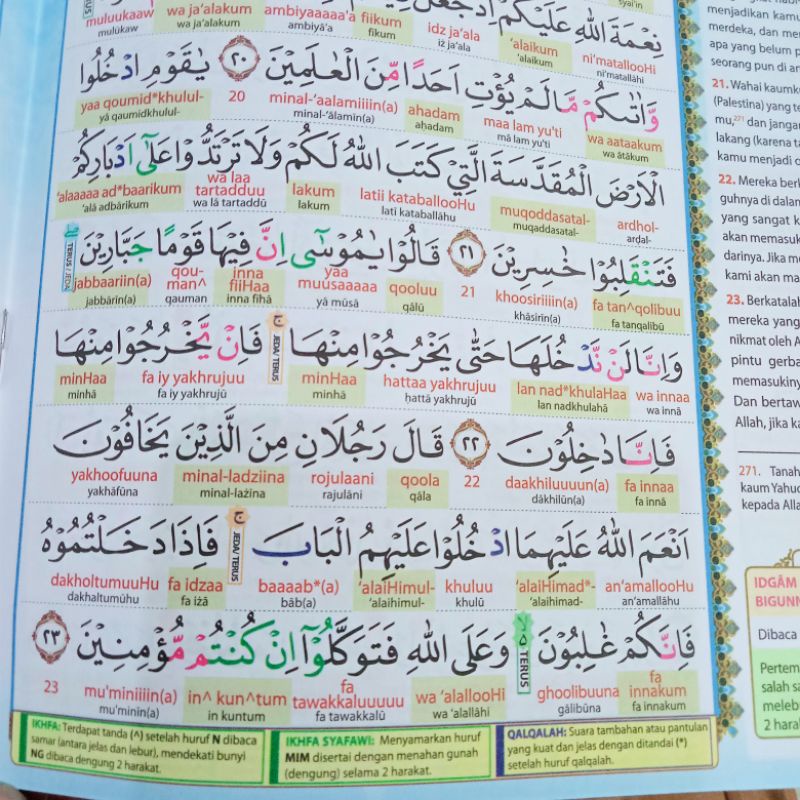 نِعْمَةَ اللهِ عَلَيْكُمْ اِذْ جَعَلَ
muluukaaw wa ja'alakum ambiyaaaaa'a fiikum idz ja'ala 'alaikum ni'matallooHi
mulūkaw wa ja'alakum ambiyā'a fīkum iż ja'ala 'alaikum ni'matallāhi
وَاٰتٰىكُمْ مَّا لَمْ يُؤْتِ اَحَدًا مِّنَ الْعٰلَمِيْنَ ٢٠ يٰقَوْمِ ادْخُلُوا
yaa qoumid*khulul- 20 minal-'aalamiiiin(a) ahadam maa lam yu'ti wa aataakum
yā qaumidkhulul- minal-'ālamīn(a) aḥadam mā lam yu'ti wa ātākum
الْاَرْضَ الْمُقَدَّسَةَ الَّتِيْ كَتَبَ اللهُ لَكُمْ وَلَا تَرْتَدُّوْا عَلٰٓى اَدْبَارِكُمْ
'alaaaaa ad*baarikum wa laa tartadduu lakum latii kataballooHu muqoddasatal- ardhol-
'alā adbārikum wa lā tartaddū lakum latī kataballāhu muqaddasatal- arḍal-
فَتَنْقَلِبُوْا خٰسِرِيْنَ ٢١ قَالُوْا يٰمُوْسٰٓى اِنَّ فِيْهَا قَوْمًا جَبَّارِيْنَ
TERUS / JEDA
jabbaariin(a) qou-man^ inna fiiHaa yaa muusaaaaa qooluu 21 khoosiriiiin(a) fa tan^qolibuu
jabbārīn(a) qauman inna fīhā yā mūsā qālū khāsirīn(a) fa tanqalibū
وَاِنَّا لَنْ نَّدْخُلَهَا حَتّٰى يَخْرُجُوْا مِنْهَا ۚ فَاِنْ يَّخْرُجُوْا مِنْهَا
JEDA/ TERUS
minHaa fa iy yakhrujuu minHaa hattaa yakhrujuu lan nad*khulaHaa wa innaa
minhā fa iy yakhrujū minhā ḥattā yakhrujū lan nadkhulahā wa innā
فَاِنَّا دٰخِلُوْنَ ٢٢ قَالَ رَجُلَانِ مِنَ الَّذِيْنَ يَخَافُوْنَ
yakhoofuuna minal-ladziina rojulaani qoola 22 daakhiluuuun(a) fa innaa
yakhāfūna minal-lażīna rajulāni qāla dākhilūn(a) fa innā
اَنْعَمَ اللهُ عَلَيْهِمَا ادْخُلُوْا عَلَيْهِمُ الْبَابَ ۚ فَاِذَا دَخَلْتُمُوْهُ
JEDA/ TERUS
dakholtumuuHu fa idzaa baaaab*(a) 'alaiHimul- khuluu 'alaiHimad*- an'amallooHu
dakhaltumūhu fa iżā bāb(a) 'alaihimul- khulū 'alaihimad- an'amallāhu
فَاِنَّكُمْ غٰلِبُوْنَ ۙ وَعَلَى اللهِ فَتَوَكَّلُوْٓا اِنْ كُنْتُمْ مُّؤْمِنِيْنَ ٢٣
TERUS
23 mu'miniiiin(a) in^ kun^tum fa tawakkaluuuuu wa 'alallooHi ghoolibuuna fa innakum
mu'minīn(a) in kuntum fa tawakkalū wa 'alallāhi gālibūna fa innakum
IKHFA: Terdapat tanda (^) setelah huruf N dibaca
samar (antara jelas dan lebur), mendekati bunyi
NG dibaca dengung 2 harakat.
IKHFA SYAFAWI: Menyamarkan huruf
MIM disertai dengan menahan gunah
(dengung) selama 2 harakat.
QALQALAH: Suara tambahan atau pantulan
yang kuat dan jelas dengan ditandai (*)
setelah huruf qalqalah.
menjadikan kamu
merdeka, dan mem
apa yang belum p
seorang pun di an
21. Wahai kaumku
(Palestina) yang te
mu,271 dan jangan
lakang (karena ta
kamu menjadi o
22. Mereka berk
guhnya di dalam
yang sangat k
akan memasuk
darinya. Jika me
kami akan ma
23. Berkatalah
mereka yang
nikmat oleh A
pintu gerba
memasukiny
Dan bertaw
Allah, jika ka
271. Tanah
kaum Yahud
kepada Alla
IDGĀM
BIGUNN
Dibaca
Pertem
salah sa
melebu
2 harak